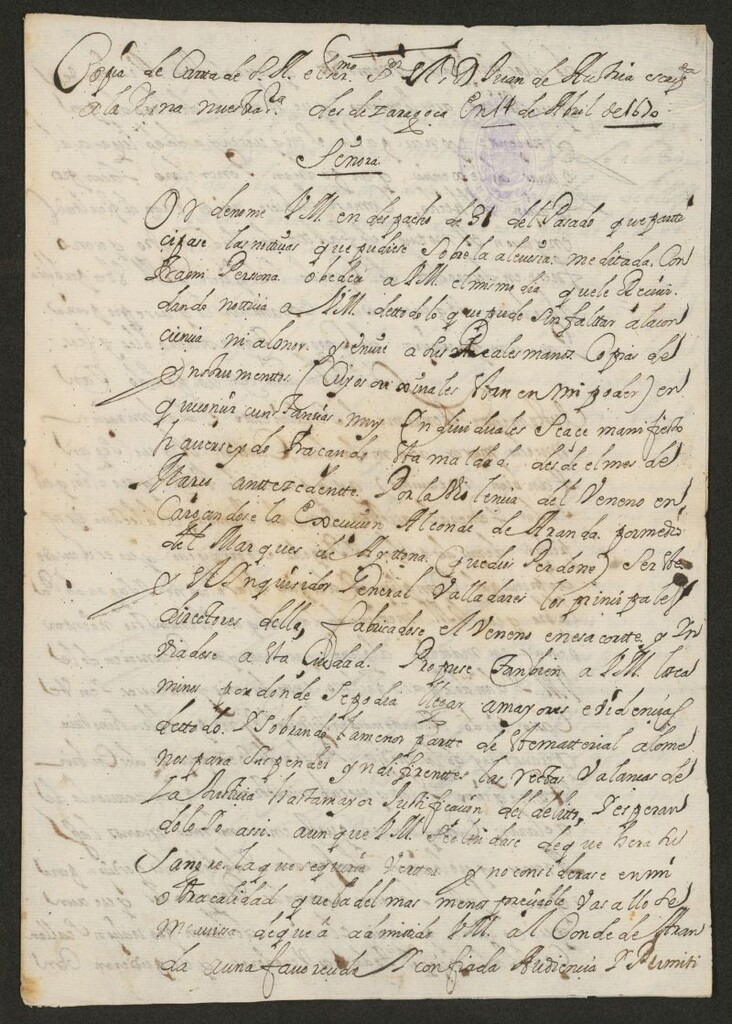 Copia de Carta de S. A. el Ser.mo S.r D. Juan de Austria escrita
a la Reina nuestra S.ra desde Zaragoça En 14 de Abril de 1670
Señora
Ordenome V M. en despacho de 31 del Pasado que parti
cipase las notticias que pudiese sobre la alevosia meditada Con
tra mi Persona obedeci a V M. el mismo dia que le Recivi
dando notticia a V M. de ttodo lo que pude sin falttar a la con
ciencia ni al onor y envie a sus Reales manos Copias de
Ynstrumenttos (Cuyos originales estan en mi poder) en
que con circunstancias muy Yndividuales se ace manifiesto
haverse ydo traçando esta maldad desde el mes de
Março anttezedentte Por la Violencia del Veneno en
Cargandose la Execucion Al conde de Aranda por medio
del Marques de Ayttona (que dios Perdone) ser este
y el Ynquisidor General Valladares los principales
directores della, fabricadose el Veneno en esa cortte y En
viadose a esta Ciudad. Propuse tambien a V M. los ca
minos por donde se podia llegar a mayores evidencias
de ttodo. Y sobrando la menor partte de este matterial a lo me
nos para suspender Yndiferenttes las rectas Valanças de
La Justticia hasta mayor Justificacion del delitto, Y esperan
dolo Yo assi aunque V M. se olvidase de que hera su
Sangre la que se queria Verter y no considerase en mi
otra calidad que la del mas menos preciable Vasallo se
me avisa de que a admitido V M. al Conde de Aran
da a una favorecida Y confiada Audiencia Y Permiti